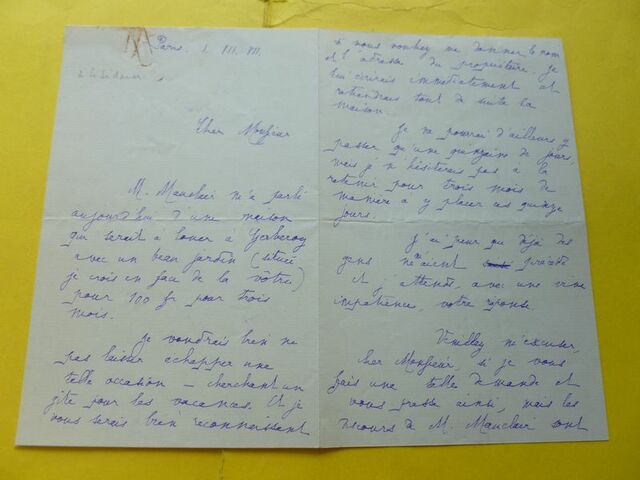 Paris. 1. VII. VII.
à Le Sidaner
Cher Monsieur
M. Mauclair m'a parlé
aujourd'hui d'une maison
qui serait à louer à Gerberoy
avec un beau jardin (située
je crois en face de la vôtre)
pour 100 fr pour trois
mois.
Je voudrais bien ne
pas laisser échapper une
telle occasion — cherchant un
gîte pour les vacances. Et je
vous serais bien reconnaissant
si vous vouliez me donner le nom
et l'adresse du propriétaire. Je
lui écrirais immédiatement et
retiendrais tout de suite la
maison.
Je ne pourrai d'ailleurs y
passer qu'une quinzaine de jours,
mais je n'hésiterais pas à la
retenir pour trois mois de
manière à y placer ces quinze
jours.
J'ai peur que déjà des
gens m'aient précédé
et j'attends, avec une vive
impatience, votre réponse.
Veuillez m'excuser,
cher Monsieur, si je vous
fais une telle demande et
vous presse ainsi, mais les
discours de M. Mauclair sont